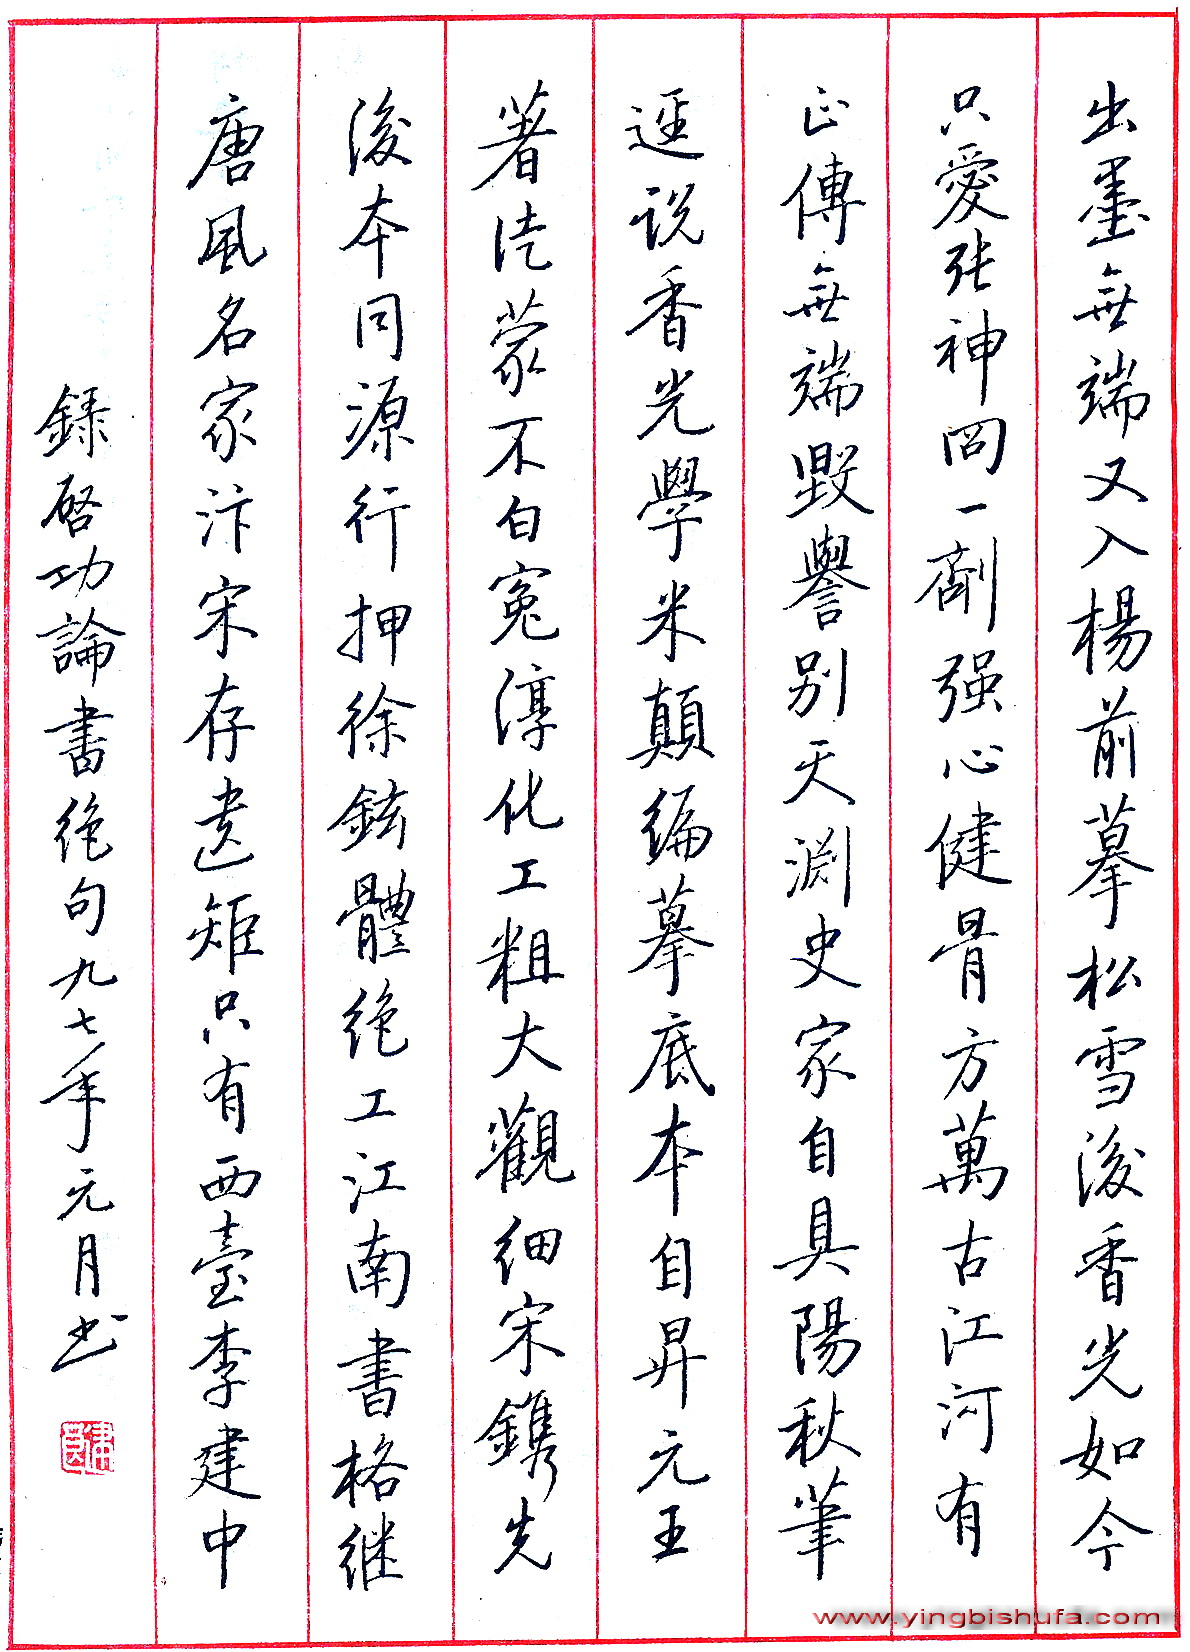 出墨無端又入楊前摹松雪後香光如今
只愛张神冏一劑强心健骨方萬古江河有
正傳無端毀譽别天淵史家自具陽秋筆
逕说香光學米顛编摹底本自昇元王
著徒蒙不白冤淳化工粗大觀细宋鐫先
後本同源行押徐鉉體绝工江南書格继
唐風名家汴宋存遗矩只有西臺李建中
録啓功論書绝句九七年元月书
www.yingbishufa.com